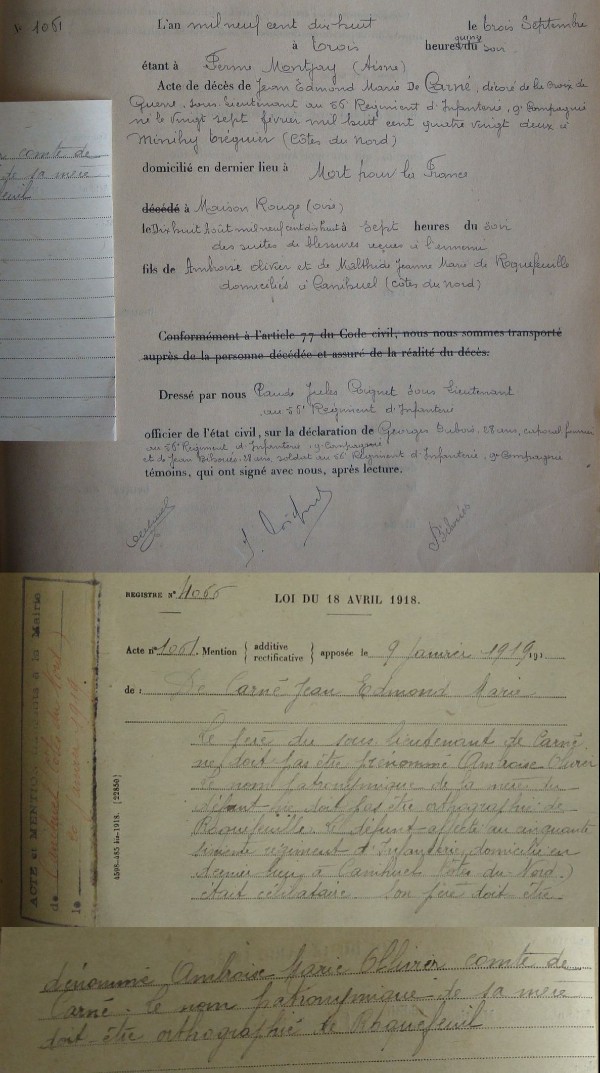 N° 1061 L'an mil neuf cent dix huit le trois Septembre
à trois heures quinze du soir
étant à Ferme Montjay (Aisne)
Acte de décès de Jean Edmond Marie De Carné, décoré de la Croix de
Guerre, sous lieutenant au 56 Régiment d'Infanterie, 9e Compagnie
né le vingt sept février mil huit cent quatre vingt deux à
Minihy tréguier (Côtes du Nord)
domicilié en dernier lieu à Mort pour la France
décédé à Maison Rouge (oise)
le Dix huit Août mil neuf cent dix huit à Sept heures du Soir
des suites de blessures reçues à l'ennemi
fils de Ambroise olivier et de Malthide Jeanne Marie de Roquefeuille
domiciliés à Canihuel (Côtes du Nord)
Conformément à l'article 77 du Code civil, nous nous sommes transporté
auprès de la personne décédée et assuré de la réalité du décès.
Dressé par nous Claude Jules Coignet Sous Lieutenant
au 56e Régiment d'Infanterie
officier de l'état civil, sur la déclaration de Georges Dubois, 28 ans, caporal fourrier
au 56e Régiment d'Infanterie, 9e Compagnie
et de Jean Bibonés, 38 ans, soldat au 56e Régiment d'Infanterie, 9e Compagnie
témoins, qui ont signé avec nous, après lecture.
comte de
de sa mère
feuil
REGISTRE N° 4066 LOI DU 18 AVRIL 1918.
Acte n° 1061. Mention { additive rectificative } apposée le 9 Janvier 1919 191
de : De Carné Jean Edmond Marie
Le père du sous lieutenant de Carné
ne doit pas être prénommé Ambroise Olivier
le nom patronymique de la mère du
défunt ne doit pas être orthographié de
Roquefeuille. Le défunt affecté au cinquante
sixième régiment d'Infanterie, domicilié en
dernier lieu à Canihuel (Côtes du Nord.)
était célibataire. Son père doit être
ACTE et MENTION à la Mairie
de Canihuel (Côtes du Nord)
le 1919
4598-485 bis-1918. (22850)
dénommé Ambroise Marie Ollivier comte de
Carné ; le nom patronymique de sa mère
doit être orthographié de Roquefeuil